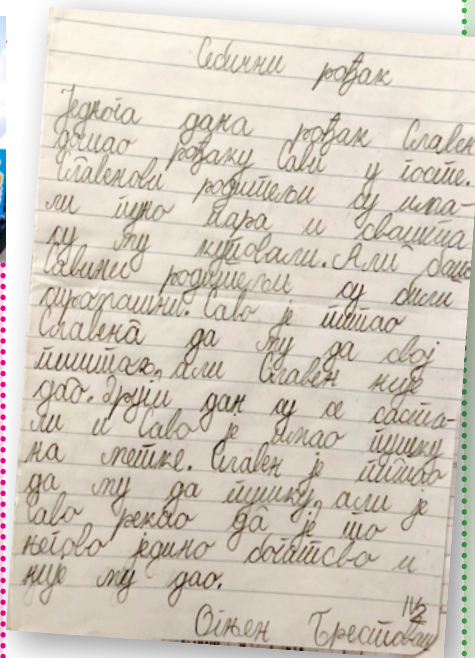 Себични рођак
Једнога дана рођак Славен
дошао рођаку Сави у госте.
Славенови родитељи су има-
ли пуно пара и свашта
су му куповали. Али
Савини родитељи су били
сиромашни. Саво је питао
Славена да му да свој
пиштољ, али Славен није
дао. Други дан су се саста-
ли и Саво је имао пушку
на метке. Славен је питао
да му да пушку, али је
Саво рекао да је то
његово једино богатсво и
није му дао.
Огњен